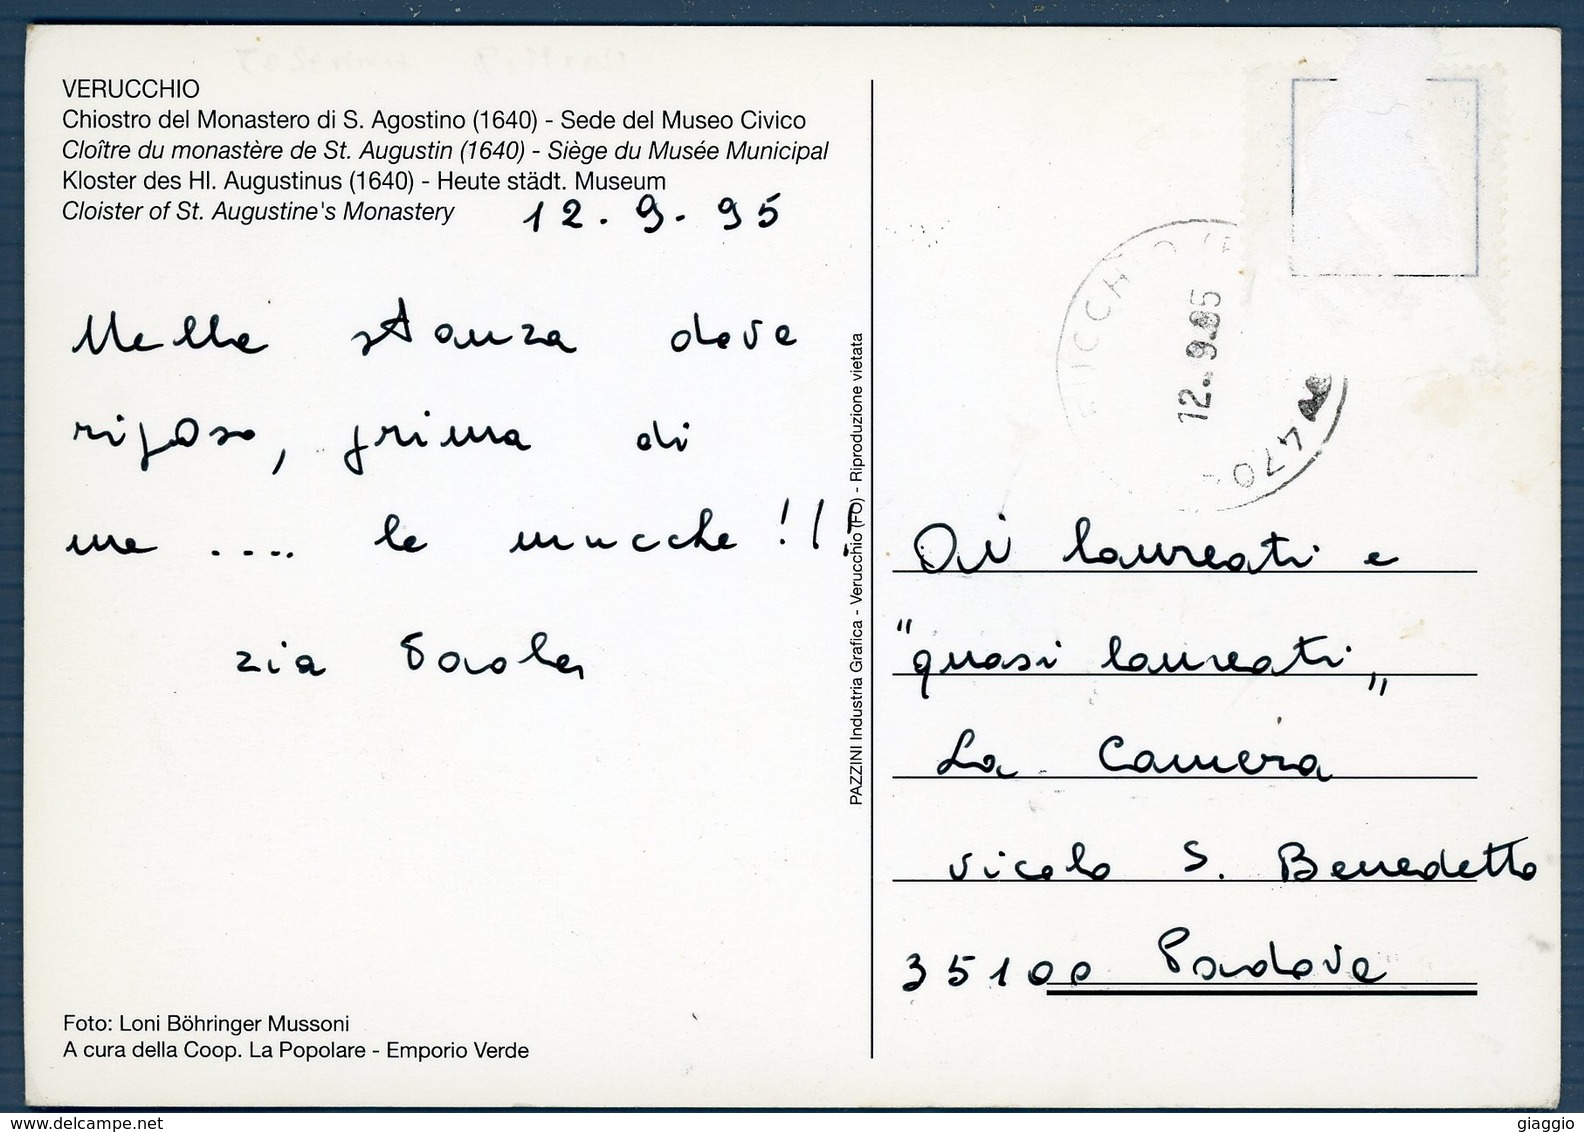 VERUCCHIO
Chiostro del Monastero di S. Agostino (1640) - Sede del Museo Civico
Cloître du monastère de St. Augustin (1640) - Siège du Musée Municipal
Kloster des Hl. Augustinus (1640) - Heute städt. Museum
Cloister of St. Augustine's Monastery
12.9.95
Nella stanza dove
riposo, prima di
me .... le mucche!!!
zia Paola
Foto: Loni Böhringer Mussoni
A cura della Coop. La Popolare - Emporio Verde
PAZZINI Industria Grafica - Verucchio (FO) - Riproduzione vietata
12.9.95
470
Ai laureati e
"quasi laureati"
La Camera
vicolo S. Benedetto
35100 Padova
delcampe.net
giaggio